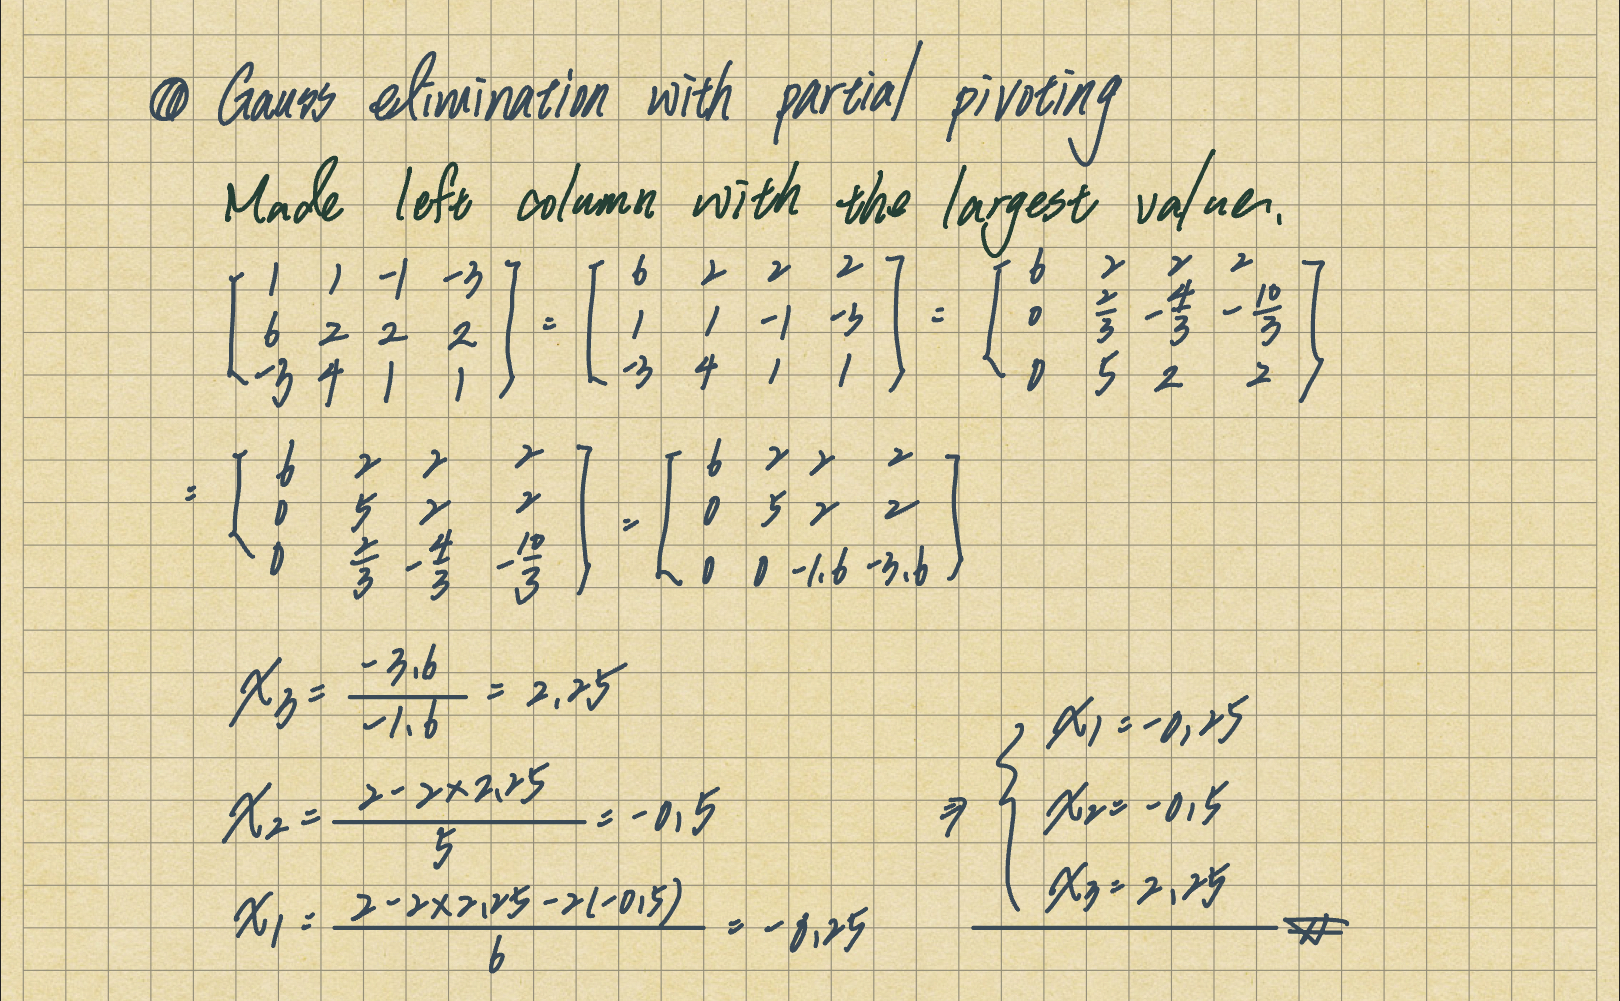 Gauss elimination with partial pivoting
Made left column with the largest value.
[1 1 -1 -3; 6 2 2 2; -3 4 1 1] = [6 2 2 2; 1 1 -1 -3; -3 4 1 1] = [6 2 2 2; 0 2/3 -4/3 -10/3; 0 5 2 2]
= [6 2 2 2; 0 5 2 2; 0 2/3 -4/3 -10/3] = [6 2 2 2; 0 5 2 2; 0 0 -1.6 -3.6]
x₃ = -3.6 / -1.6 = 2.25
x₂ = 2 - 2×2.25 / 5 = -0.5
x₁ = 2 - 2×2.25 - 2(-0.5) / 6 = -0.25
⇒ { x₁ = -0.25
x₂ = -0.5
x₃ = 2.25